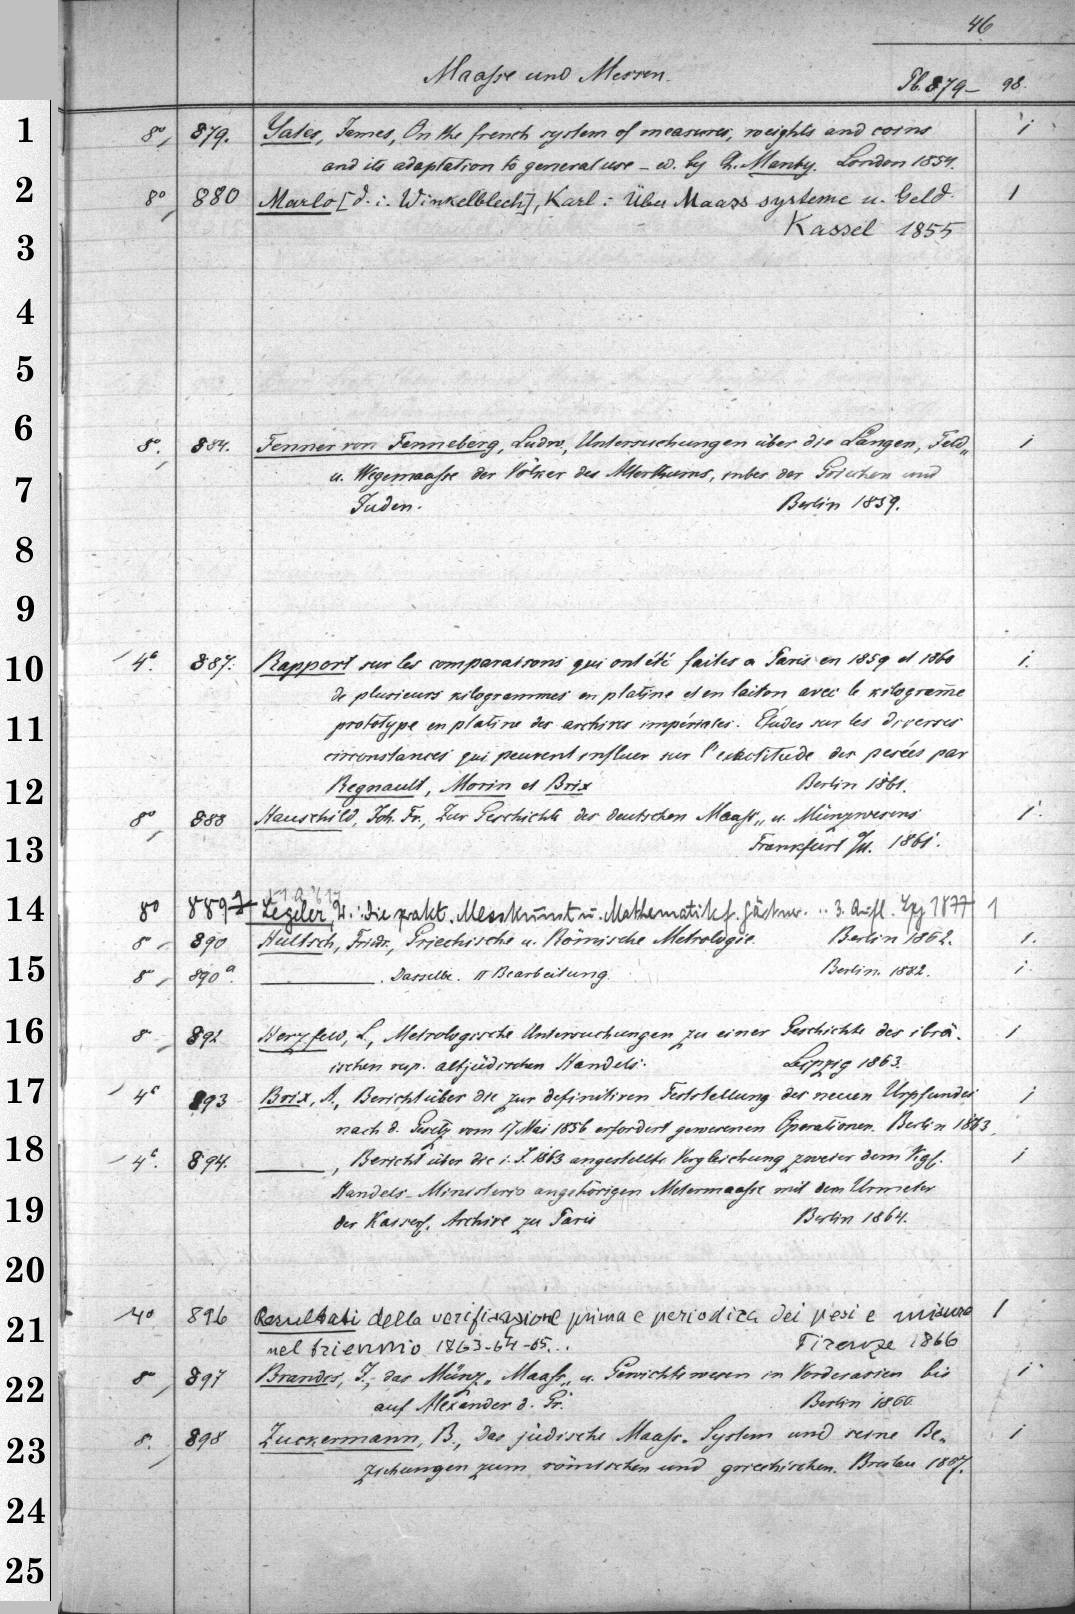 46
Maasse und Messen.
Pb. 879– 98.
1 8°, 879. Yates, James, On the french system of measures, weights and coins i
and its adaptation to general use – ed. by Ch. Manby. London 1854.
2 8°, 880 Marlo [d. i. Winkelblech], Karl: Über Maass systeme u. Geld. 1
3 Kassel 1855
4
5
6 8°, 884. Fenner von Fenneberg, Ludw., Untersuchungen über die Längen, Feld„ i
7 u. Wegemaasse der Völker des Alterthums, insbes. der Griechen und
Juden. Berlin 1859.
8
9
10 4°. 887. Rapport sur les comparaisons qui ont été faites a Paris en 1859 et 1860 i.
de plusieurs kilogrammes en platine et en laiton avec le kilogram̄e
11 prototype en platine des archives impériales. Études sur les diverses
circonstances qui peuvent influer sur l'exactitude des pesées par
12 Regnault, Morin et Brix Berlin 1861.
8°, 888 Hauschild, Joh. Fr., Zur Geschichte des deutschen Maass„ u. Münzwesens i
13 Frankfurt a/M. 1861.
14 8° 889 Legeler, W.: Die prakt. Messkunst u. Mathematik f. Gärtner. .. 3. Aufl. Lpz 1877 1
8°, 890 Hultsch, Fridr., Griechische u. Römische Metrologie. Berlin 1862. i.
15 8°, 890a. ———. Dasselbe. II Bearbeitung. Berlin. 1882. i.
16 8°, 892 Herzfeld, L., Metrologische Untersuchungen zu einer Geschichte des ibrä- i
ischen resp. altjüdischen Handels. Leipzig 1863.
17 4° 893 Brix, A., Bericht über die zur definitiven Feststellung des neuen Urpfundes i
nach d. Gesetz vom 17 Mai 1856 erfordert gewesenen Operationen. Berlin 1863.
18 4°. 894. ———, Bericht über die i. J. 1863 angestellte Vergleichung zweier dem Kgl. i
Handels Ministerio angehörigen Metermaasse mit dem Urmeter
19 der Kaiserl. Archive zu Paris Berlin 1864.
20
4° 896 Resultati della verificazione prima e periodica dei pesi e misura 1
21 nel triennio 1863-64-65... Firenze 1866
22 8°, 897 Brandes, J., das Münz„ Maass„ u. Gewichtswesen in Vorderasien bis i
auf Alexander d. Gr. Berlin 1866
23 8°, 898 Zuckermann, B., Das jüdische Maass- System und seine Be„ i
ziehungen zum römischen und griechischen. Breslau 1867.
24
25